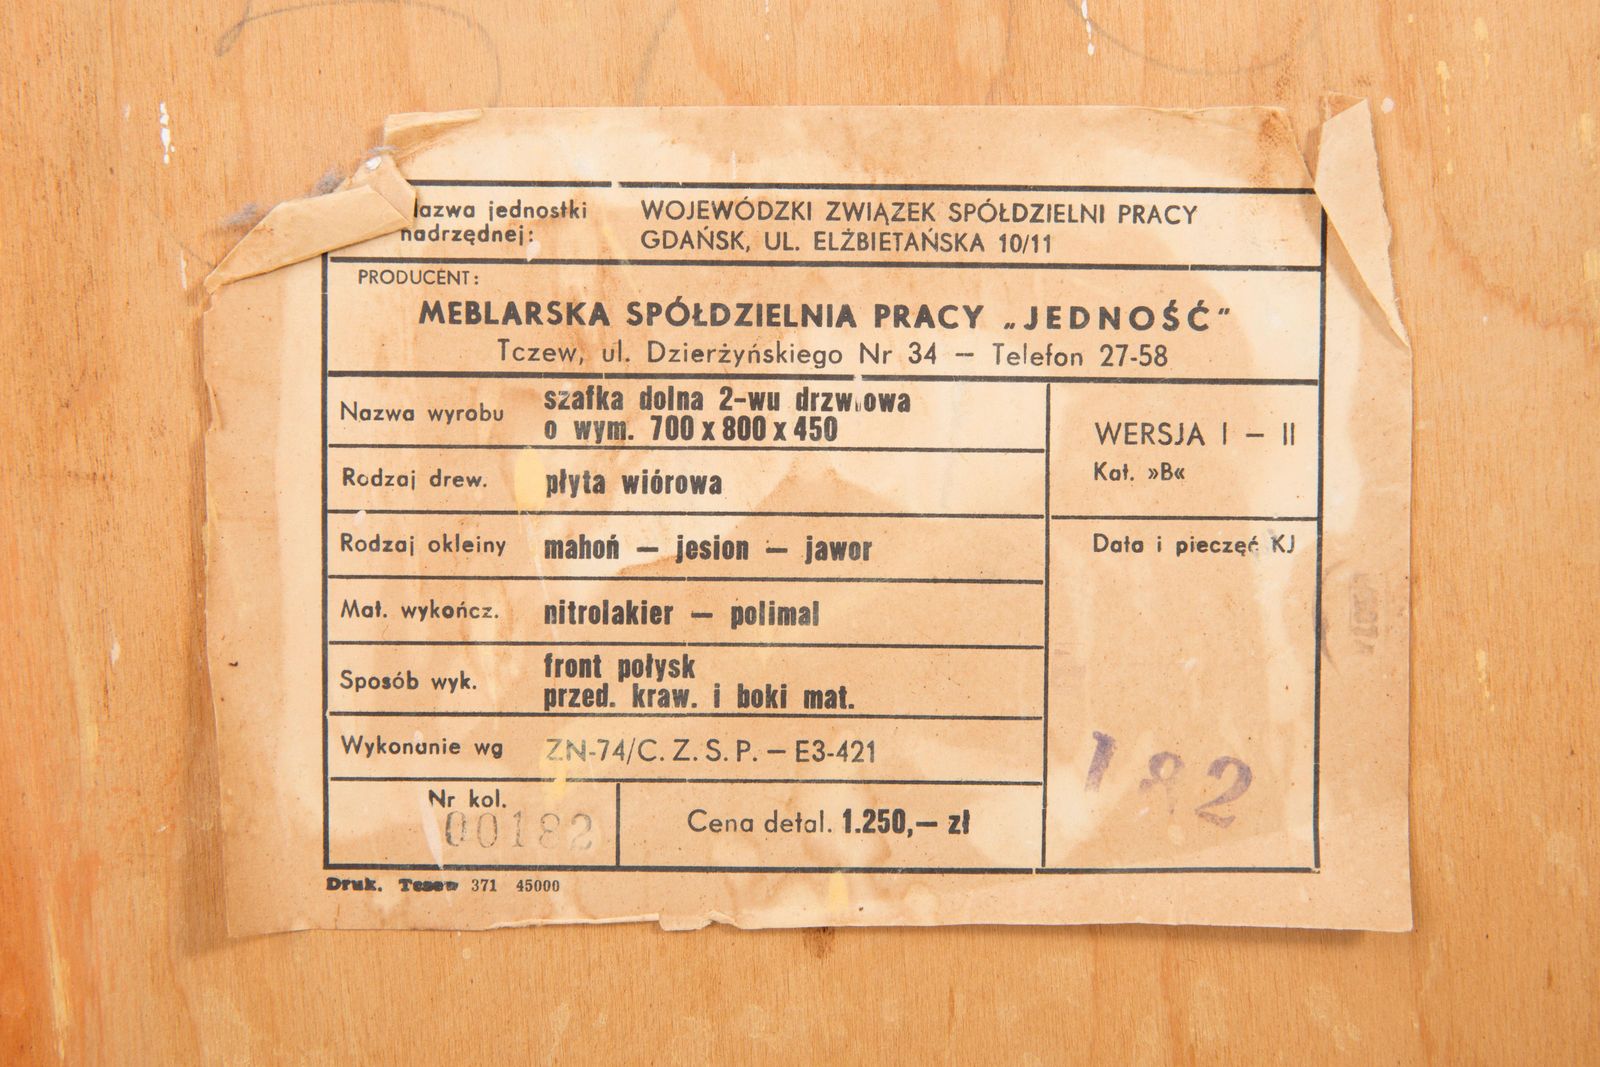 Nazwa jednostki nadrzędnej:
WOJEWÓDZKI ZWIĄZEK SPÓŁDZIELNI PRACY
GDAŃSK, UL. ELŻBIETAŃSKA 10/11
PRODUCENT:
MEBLARSKA SPÓŁDZIELNIA PRACY „JEDNOŚĆ"
Tczew, ul. Dzierżyńskiego Nr 34 — Telefon 27-58
Nazwa wyrobu
szafka dolna 2-wu drzwiowa
o wym. 700 x 800 x 450
WERSJA I — II
Kat. »B«
Rodzaj drew. płyta wiórowa
Rodzaj okleiny mahoń — jesion — jawor
Data i pieczęć KJ
Mat. wykończ. nitrolakier — polimal
Sposób wyk.
front połysk
przed. kraw. i boki mat.
Wykonanie wg ZN-74/C. Z. S. P. — E3-421
182
Nr kol.
00182
Cena detal. 1.250,— zł
Druk. Tczew 371 45000